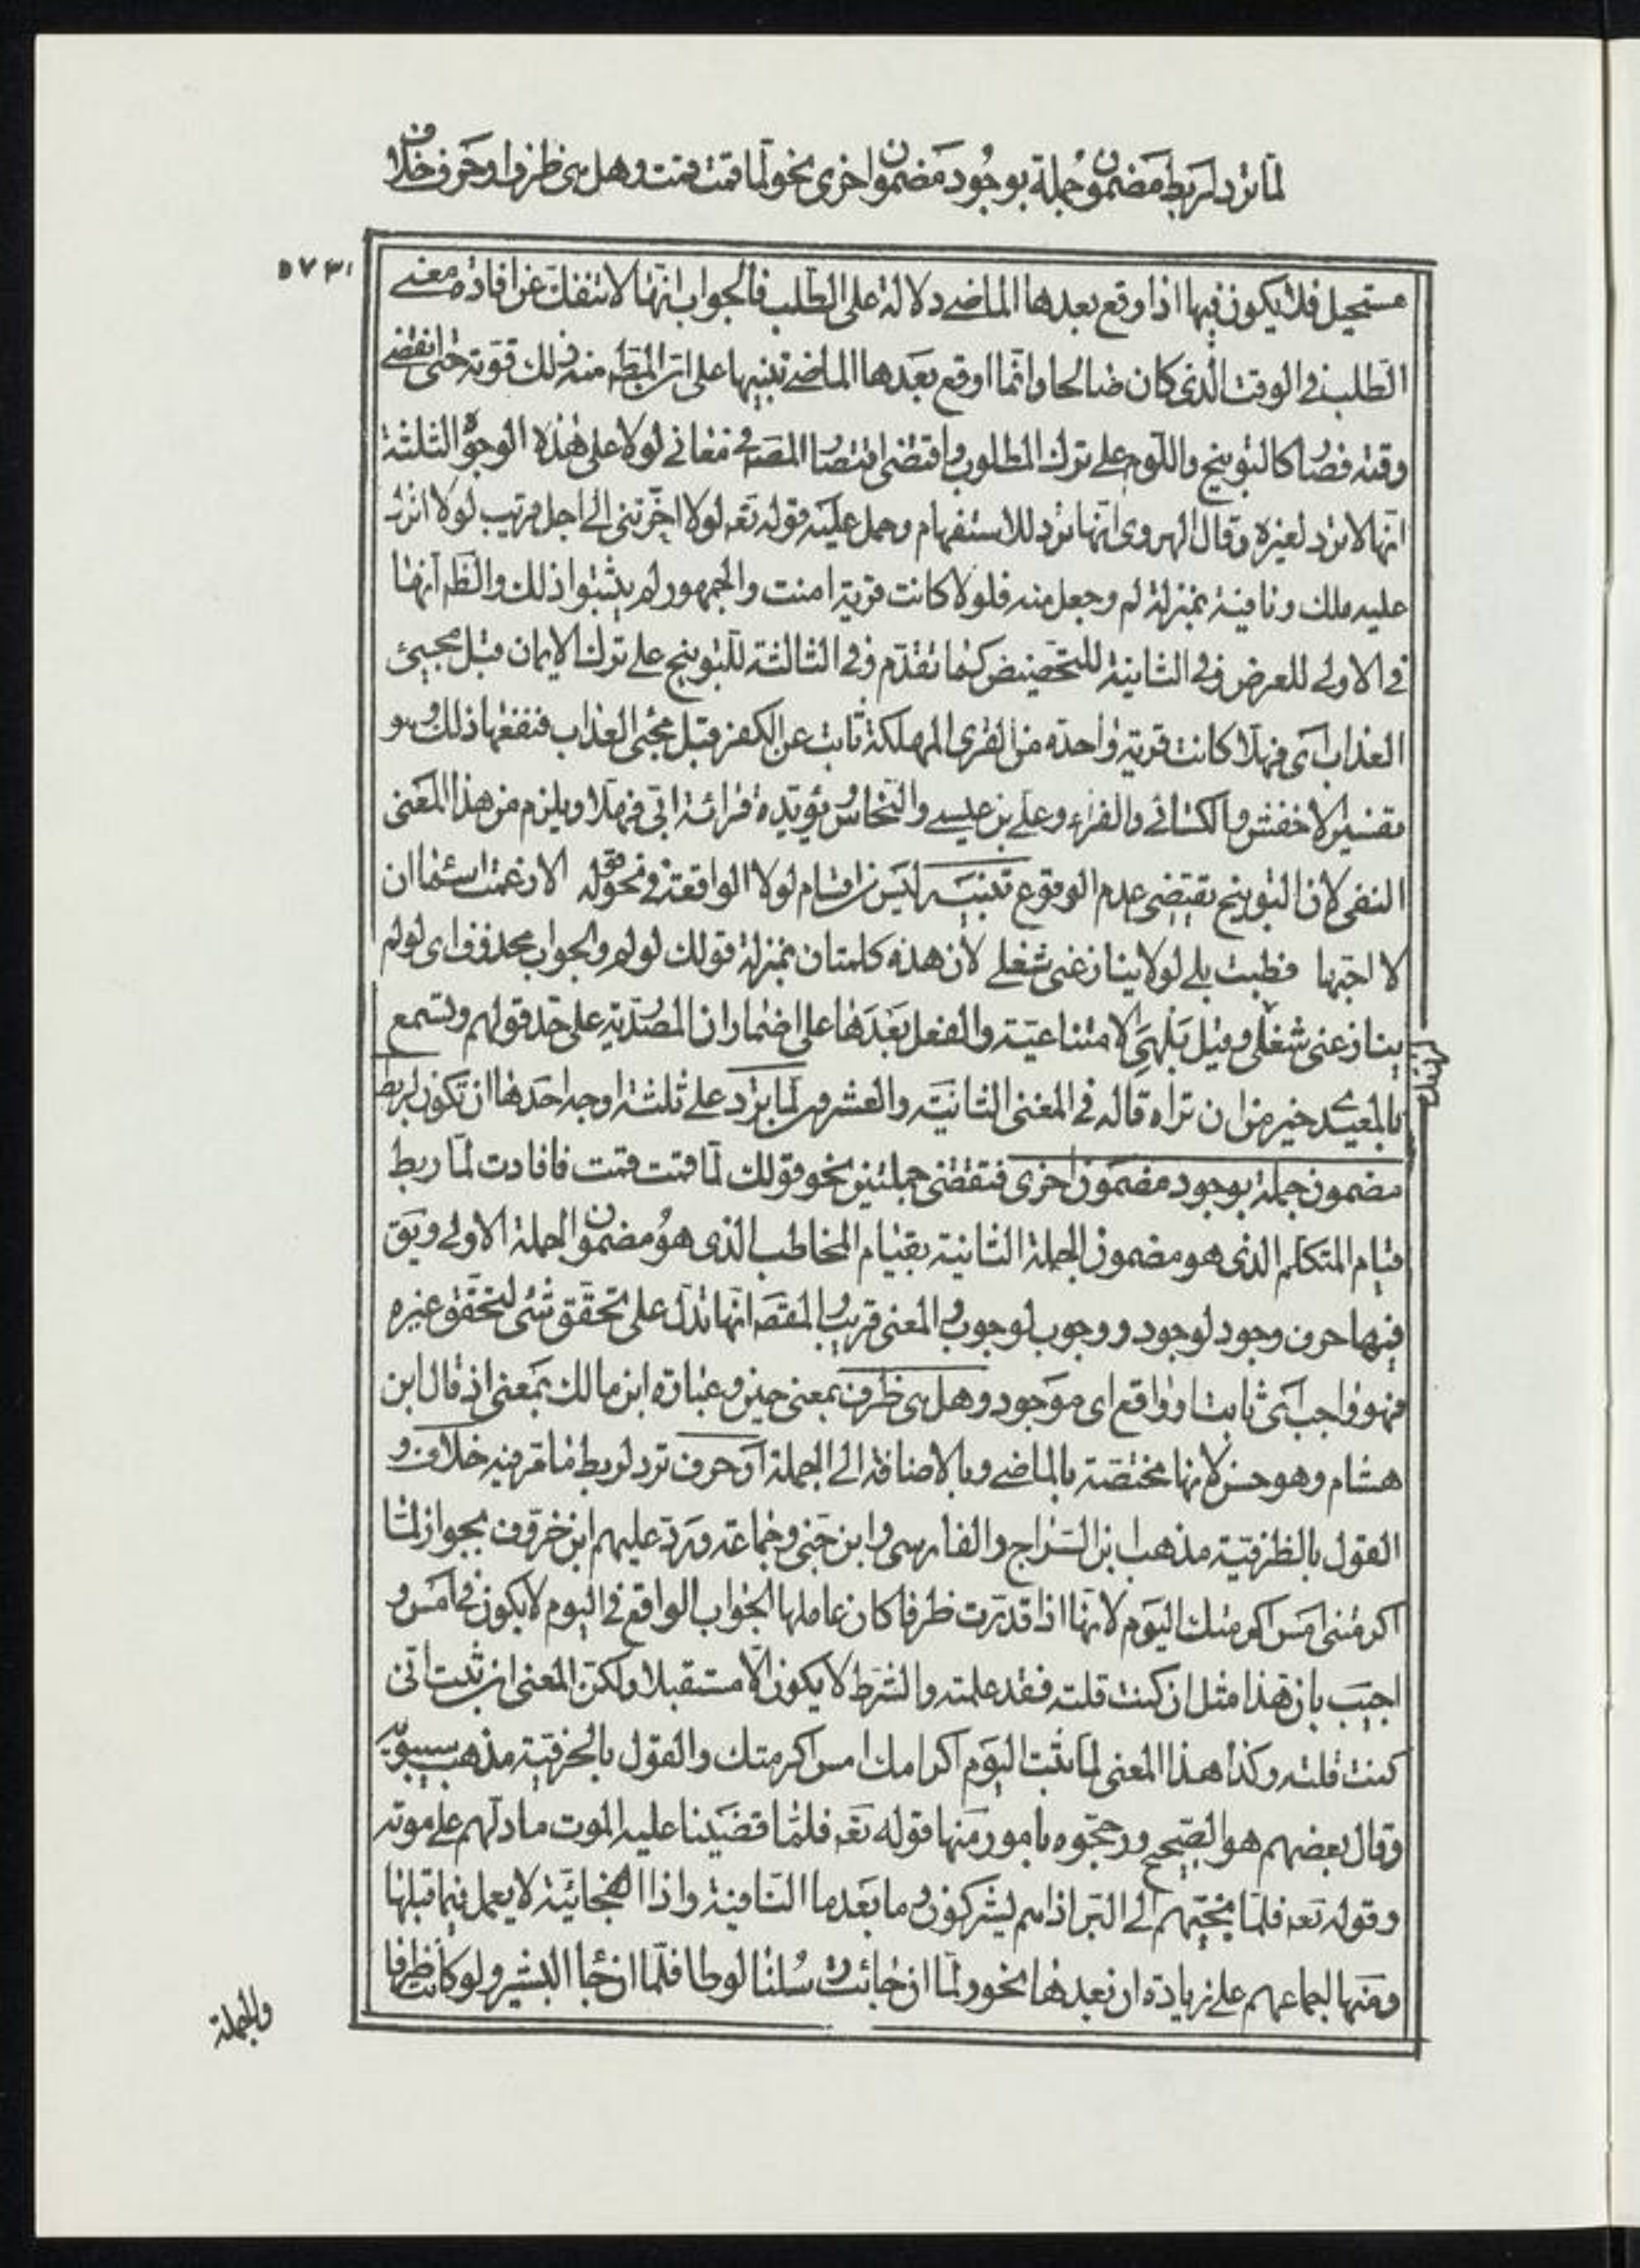 لما ترد لربط مضمون جملة بوجود مضمون اخرى نحو لما قمت قمت وهل هى ظرف او حرف خلاف
مستحيل فلا يكون فيها اذا وقع بعدها الماضى دلالة على الطلب فالجواب انها لا تنفك عن افادة معنى
الطلب فى الوقت الذى كان صالحا وانما اوقع بعدها الماضى تنبيها على ان المط منه ترك قوته حتى انقضى
وقته فصار كالتوبيخ واللوم على ترك المطلوب واقتضى اقتصار المصـ فى معانى لولا على هذه الوجوه الثلثة
انها لا ترد لغيره وقال الهروى انها ترد للاستفهام وحمل عليه قوله تعـ لولا اخرتنى الى اجل قريب لولا انزل
عليه ملك ونافية بمنزلة لم وجعل منه فلولا كانت قرية امنت والجمهور لم يثبتوا ذلك والظـ انها
فى الاولى للعرض وفى الثانية للتحضيض كما تقدم وفى الثالثة للتوبيخ على ترك الايمان قبل مجيئ
العذاب اى فهلا كانت قرية واحدة من القرى المهلكة تابت عن الكفر قبل مجئ العذاب فنفعها ذلك وهو
تفسير الاخفش والكسائى والفراء وعلى بن عيسى والنحاس ويؤيده قرائة ابى فهلا ويلزم من هذا المعنى
النفى لان التوبيخ يقتضى عدم الوقوع تنبيه ليس من اقسام لولا الواقعة فى نحو قوله الا زعمت اسماء ان
لا احبها فطبت بلى لولا ينازعنى شغلى لان هذه كلمتان بمنزلة قولك لو لم والجواب محذوف اى لو لم
ينازعنى شغلى وقيل بل هى الامتناعية والفعل بعدها على اضمار ان المصدرية على حد قولهم وتسمع
بالمعيدى خير من ان تراه قاله فى المغنى الثانية والعشرون لما ترد على ثلثة اوجه احدها ان تكون لربط
مضمون جملة بوجود مضمون اخرى فتقتضى جملتين نحو قولك لما قمت قمت فافادت لما ربط
قيام المتكلم الذى هو مضمون الجملة الثانية بقيام المخاطب الذى هو مضمون الجملة الاولى ويق
فيها حرف وجود لوجود ووجوب لوجوب والمعنى قريب والمقصـ انها تدل على تحقق شئ لتحقق غيره
فهو واجب اى ثابت او واقع اى موجود وهل هى ظرف بمعنى حين وعبارة ابن مالك بمعنى اذ قال ابن
هشام وهو حسن لانها مختصة بالماضى وبالاضافة الى الجملة او حرف ترد لربط ما مر فيه خلاف و
القول بالظرفية مذهب ابن السراج والفارسى وابن جنى وجماعة ورد عليهم ابن خروف بجواز لما
اكرمتنى امس اكرمتك اليوم لانها اذا قدرت ظرفا كان عاملها الجواب الواقع فى اليوم لا يكون فى امس و
اجيب بان هذا مثل ان كنت قلته فقد علمته والشرط لا يكون الا مستقبلا ولكن المعنى ان ثبت انى
كنت قلته وكذا هذا المعنى لما ثبت اليوم اكرامك امس اكرمتك والقول بالحرفية مذهب سيبويه
وقال بعضهم هو الصحيح ورجحوه بامور منها قوله تعـ فلما قضينا عليه الموت ما دلهم على موته
وقوله تعـ فلما نجيهم الى البر اذا هم يشركون وما بعد ما النافية واذا الفجائية لا يعمل فيما قبلها
ومنها اجماعهم على زيادة ان بعدها نحو ولما ان جائت رسلنا لوطا فلما ان جاء البشير ولو كانت ظرفا
والجملة